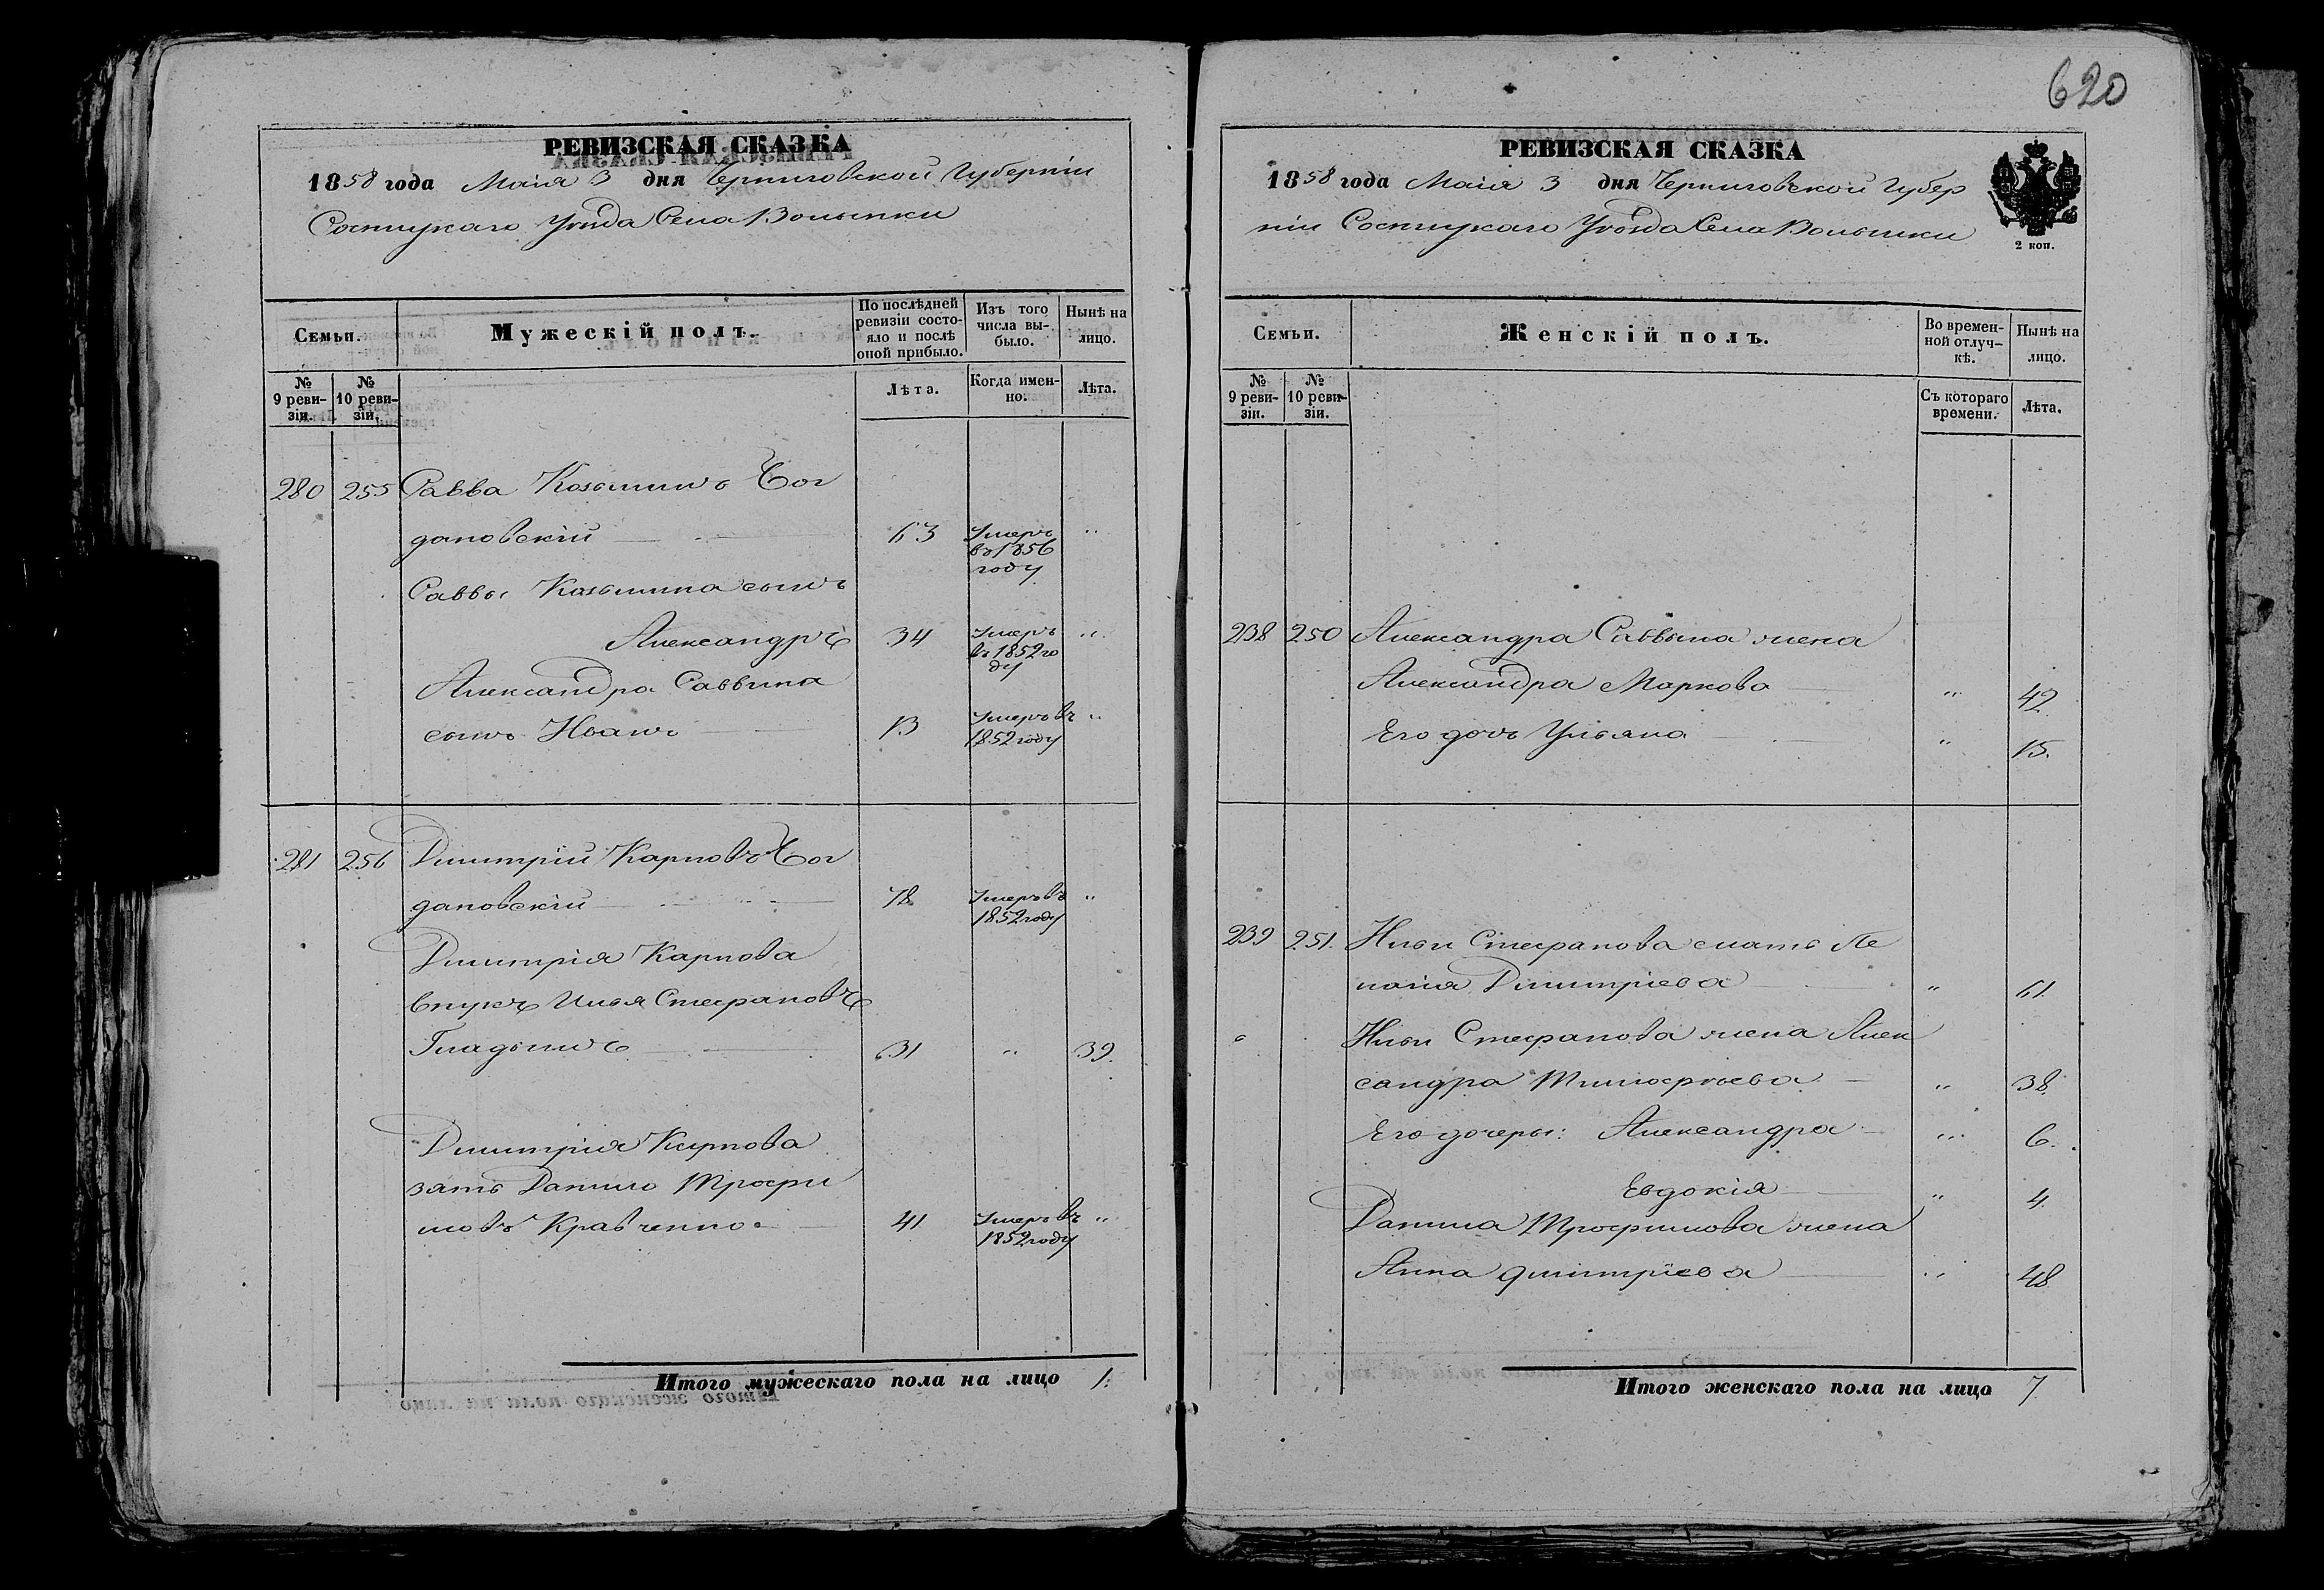 620
РЕВИЗСКАЯ СКАЗКА
1858 года Маія 3 дня Черниговской Губерніи
Сосницкаго Уѣзда Села Волынки
Семьи.
Мужескій полъ.
По послѣдней ревизіи состояло и послѣ оной прибыло.
Изъ того числа выбыло.
Нынѣ на лицо.
№ 9 ревизіи.
№ 10 ревизіи.
Лѣта.
Когда именно.
Лѣта.
280 255 Савва Козьминъ Бог
дановскій 63 Умеръ въ 1856 году "
Саввы Козьмина сынъ
Александръ 34 Умеръ въ 1852 году "
Александра Саввина
сынъ Иванъ 13 Умеръ въ 1852 году "
281 256 Димитрій Карповъ Бог
дановскій 78 Умеръ въ 1852 году "
Димитрія Карпова
внукъ Илья Стефановъ
Гладышъ 31 " 39.
Димитрія Карпова
зять Данило Трофи
мовъ Кравченко 41 Умеръ въ 1852 году "
Итого мужескаго пола на лицо 1.
РЕВИЗСКАЯ СКАЗКА
1858 года Маія 3 дня Черниговской Губер
ніи Сосницкаго Уѣзда Села Волынки
2 коп.
Семьи.
Женскій полъ.
Во временной отлучкѣ.
Нынѣ на лицо.
№ 9 ревизіи.
№ 10 ревизіи.
Съ котораго времени.
Лѣта.
238 250 Александра Саввина жена
Александра Маркова " 42
Его дочь Ульяна " 15.
239 251. Ильи Стефанова мать Ме
ланія Димитріева " 61.
Ильи Стефанова жена Алек
сандра Тимофѣева " 38.
Его дочеры: Александра " 6.
Евдокія " 4.
Данила Трофимова жена
Анна Димитріева " 48.
Итого женскаго пола на лицо 7